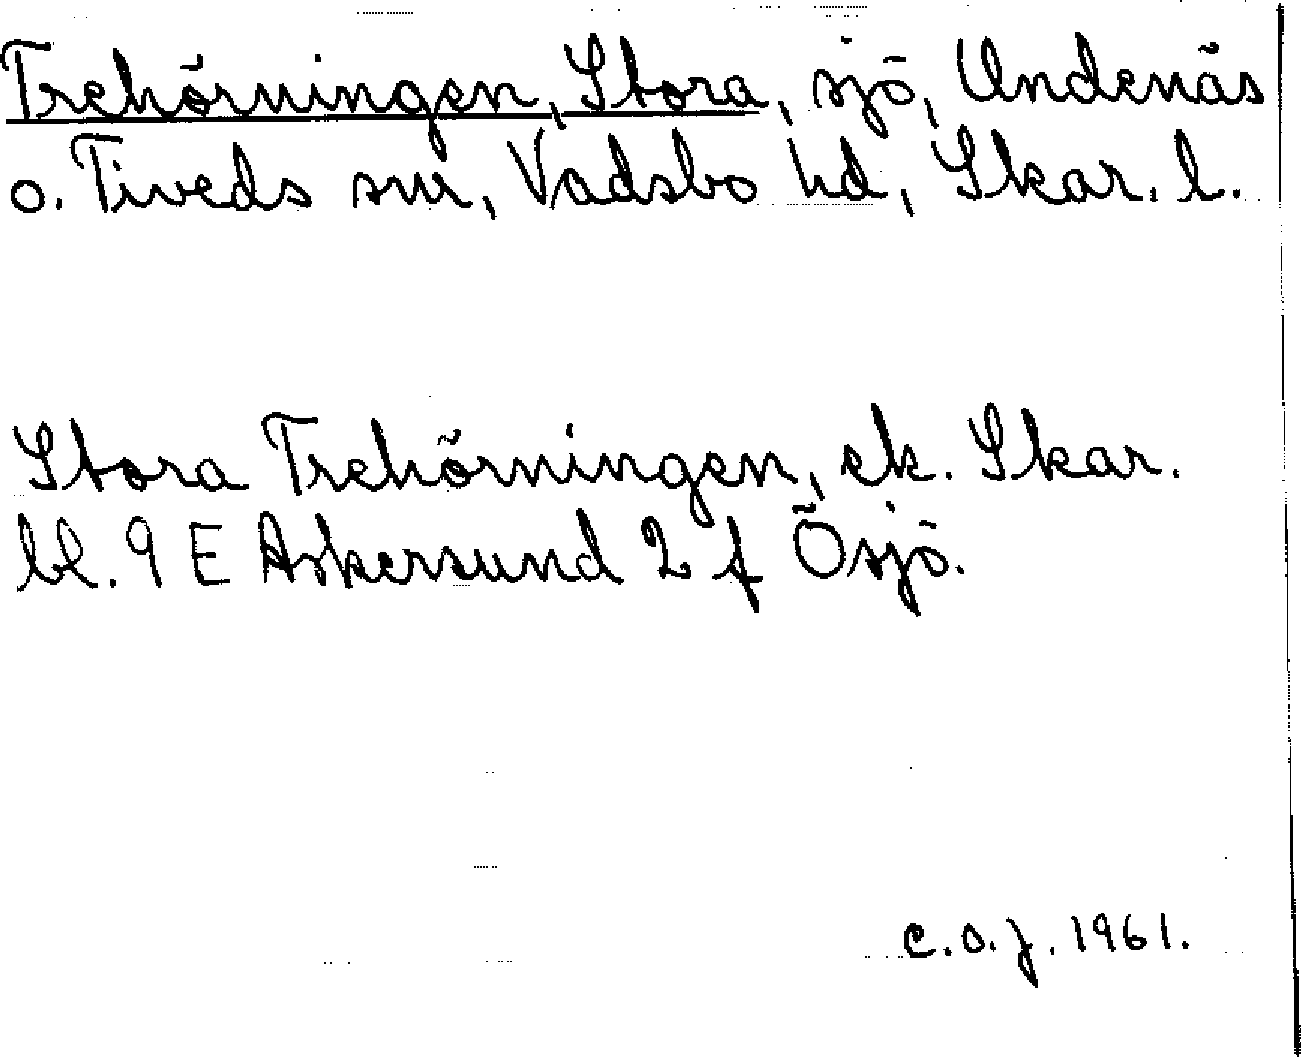 Trehörningen, Stora, sjö, Undenäs
o. Tiveds snr, Vadsbo hd, Skar. l.
Stora Trehörningen, ek. Skar.
bl. 9 E Askersund 2 f Ösjö.
C.O.J. 1961.